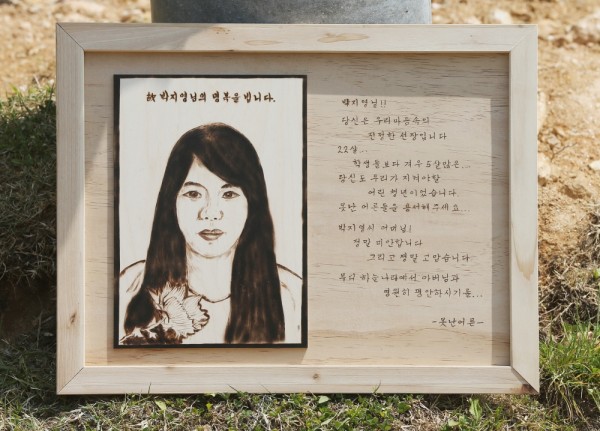 故 박지영님의 명복을 빕니다.
박지영님!!
당신은 우리마음속의
진정한 선장입니다
22살..
학생들보다 겨우 5살많은...
당신도 우리가 지켜야할
어린 청년이었습니다.
못난 어른들을 용서해주세요...
박지영씨 어머님!
정말 미안합니다
그리고 정말 고맙습니다.
부디 하늘나라에서 아버님과
영원히 평안하시기를...
-못난어른-